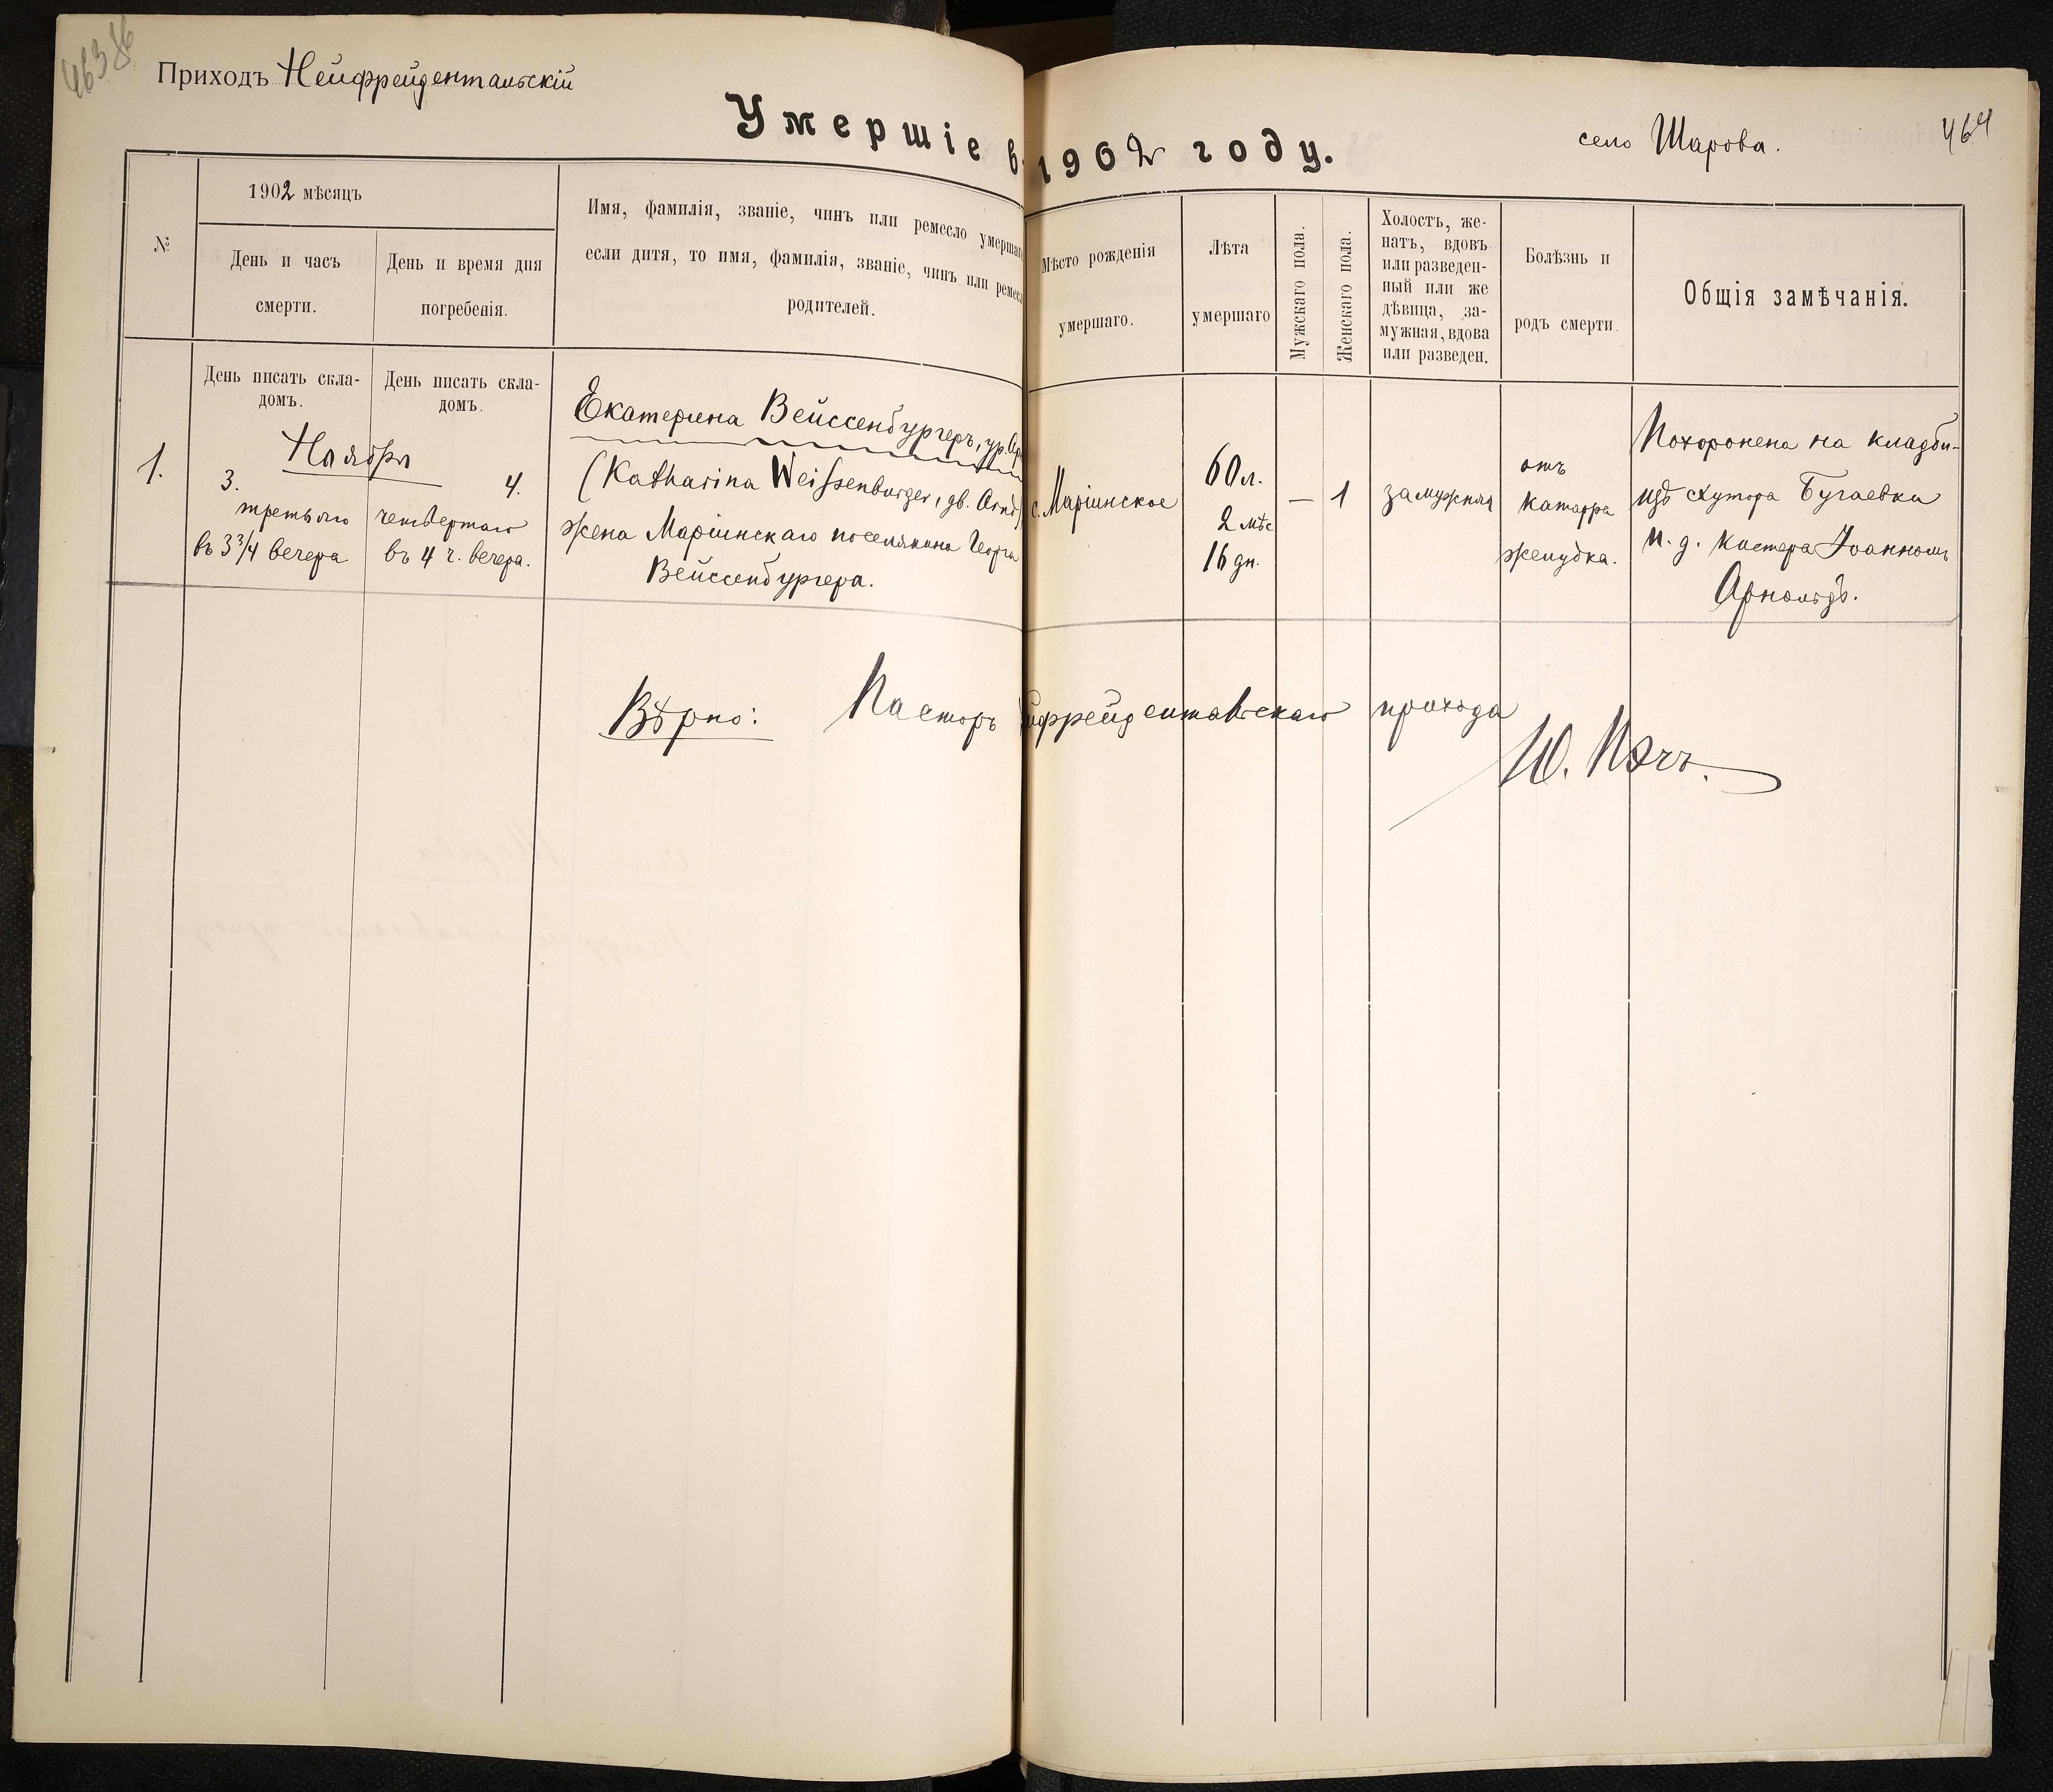 463 об
Приходъ Нейфрейдентальскій
Умершіе въ 1902 году.
село Шарова.
464
№
1902 мѣсяцъ
День и часъ
смерти.
День и время дня
погребенія.
Имя, фамилія, званіе, чинъ или ремесло умершаго
если дитя, то имя, фамилія, званіе, чинъ или ремесло
родителей.
Мѣсто рожденія
умершаго.
Лѣта
умершаго
Мужскаго пола.
Женскаго пола.
Холостъ, же-
натъ, вдовъ
или разведен-
ный или же
дѣвица, за-
мужная, вдова
или разведен.
Болѣзнь и
родъ смерти.
Общія замѣчанія.
День писать скла-
домъ.
День писать скла-
домъ.
1.
Ноября
3.
третьяго
въ 3 3/4 вечера
4.
четвертаго
въ 4 ч. вечера.
Екатерина Вейссенбургеръ, ур.
(Katharina Weissenburger, gb. Arnd
жена Маріинскаго поселянина Георга
Вейссенбургера.
с. Маріинское
60 л.
2 мѣс
16 дн.
—
1
замужняя
отъ
катарра
желудка.
Похоронена на кладби-
щѣ хутора Бугаевки
и. д. кистера Іоанномъ
Арнольдъ.
Вѣрно: Пасторъ Нейфрейдентальскаго прихода